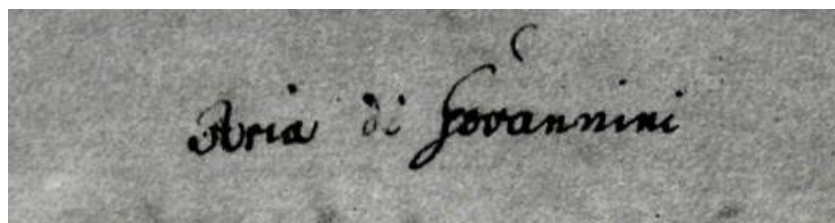 Aria di Govannini